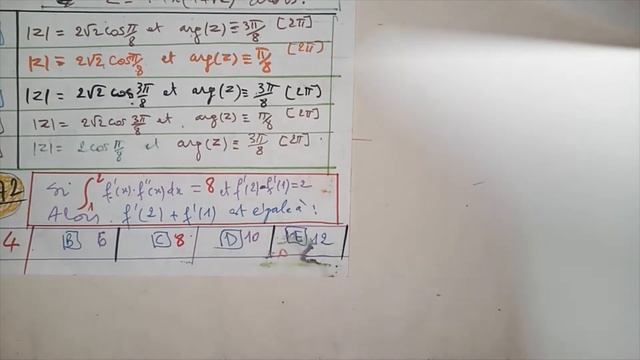 |Z| = 2√2 cos π/8 et arg(Z) ≡ 3π/8 [2π]
|Z| = 2√2 cos π/8 et arg(Z) ≡ π/8 [2π]
|Z| = 2√2 cos 3π/8 et arg(Z) ≡ 3π/8 [2π]
|Z| = 2√2 cos 3π/8 et arg(Z) ≡ π/8 [2π]
|Z| = 2cos π/8 et arg(Z) ≡ 3π/8 [2π]
Si ∫₁² f'(x)·f''(x)dx = 8 et f'(2)-f'(1)=2
Alors f'(2) + f'(1) est égale à :
4 B 6 C 8 D 10 E 12